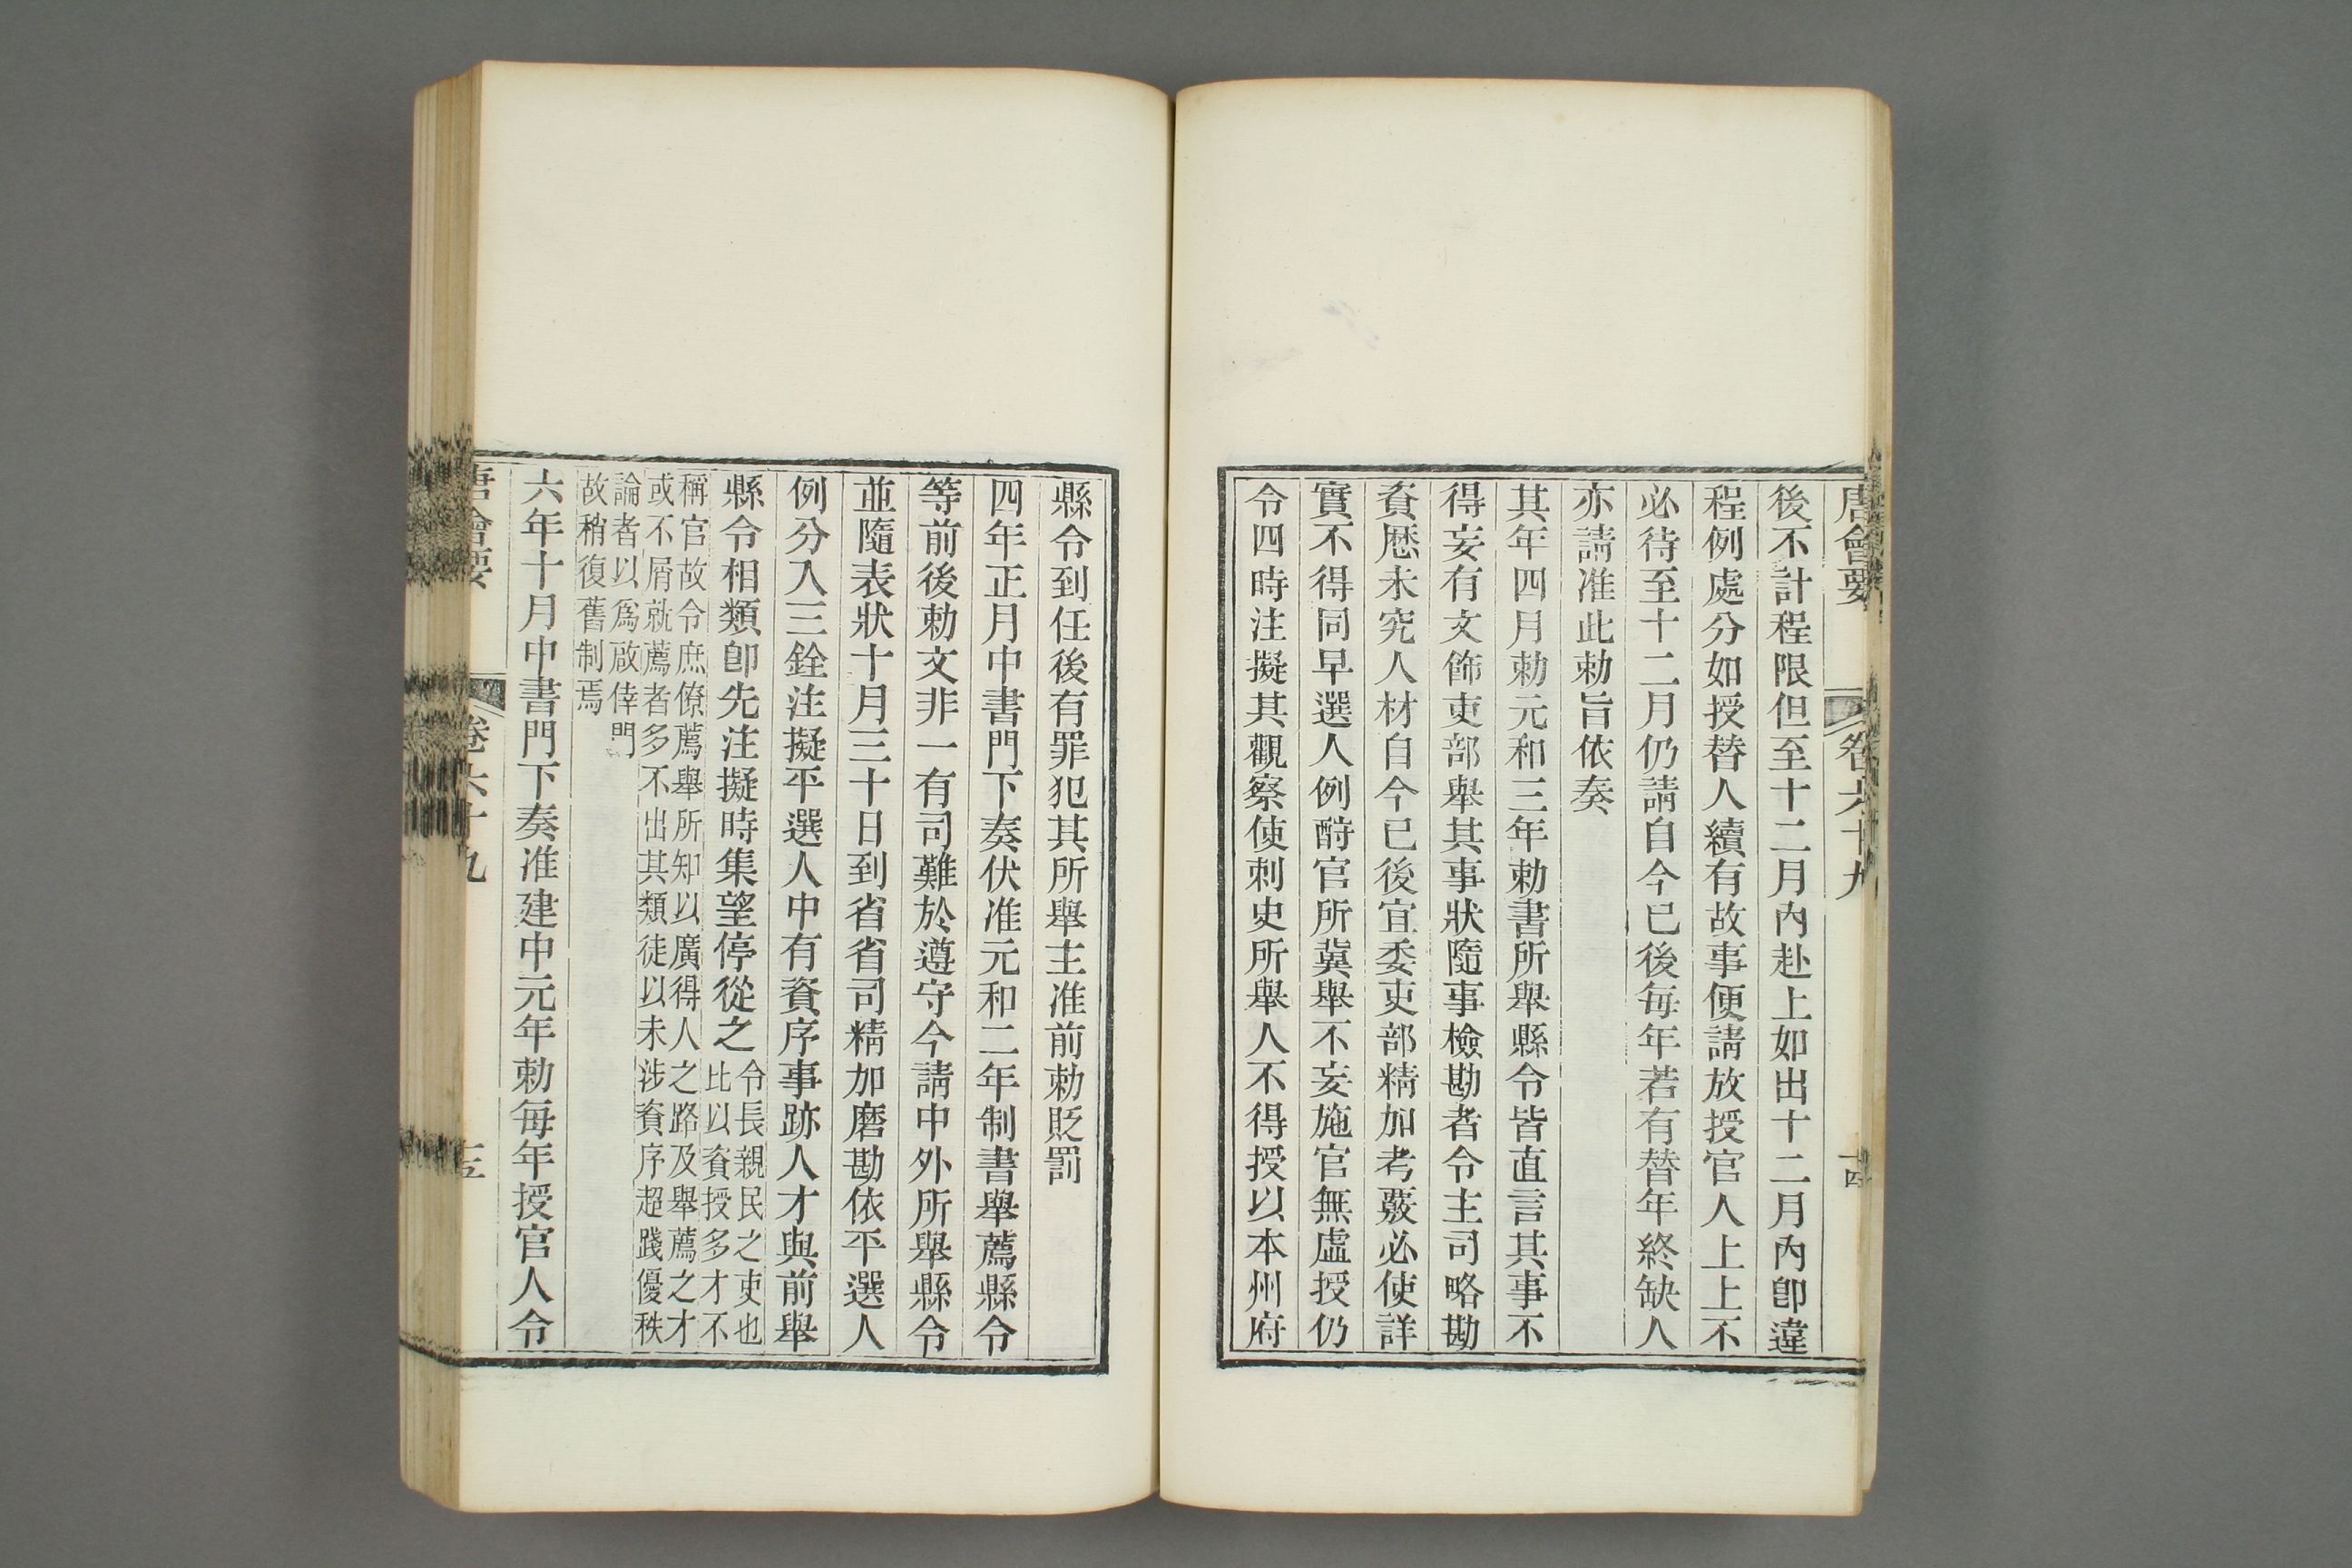 唐會要 卷六十九 十四
後不計程限但至十二月內赴上如出十二月內卽違
程例處分如授替人續有故事便請放授官人上上不
必待至十二月仍請自今已後每年若有替年終缺人
亦請准此勅旨依奏
其年四月勅元和三年勅書所舉縣令皆直言其事不
得妄有文飾吏部舉其事狀隨事檢勘者令主司略勘
資歷未究人材自今已後宜委吏部精加考覈必使詳
實不得同早選人例酧官所冀舉不妄施官無虛授仍
令四時注擬其觀察使刺史所舉人不得授以本州府
縣令到任後有罪犯其所舉主准前勅貶罰
四年正月中書門下奏伏准元和二年制書舉薦縣令
等前後勅文非一有司難於遵守今請中外所舉縣令
並隨表狀十月三十日到省省司精加磨勘依平選人
例分入三銓注擬平選人中有資序事跡人才與前舉
縣令相類卽先注擬時集望停從之
令長親民之吏也
比以資授多才不
稱官故令庶僚薦舉所知以廣得人之路及舉薦之才
或不屑就薦者多不出其類徒以未涉資序超踐優秩
論者以爲啟倖門
故稍復舊制焉
六年十月中書門下奏准建中元年勅每年授官人令
唐會要 卷六十九 十五